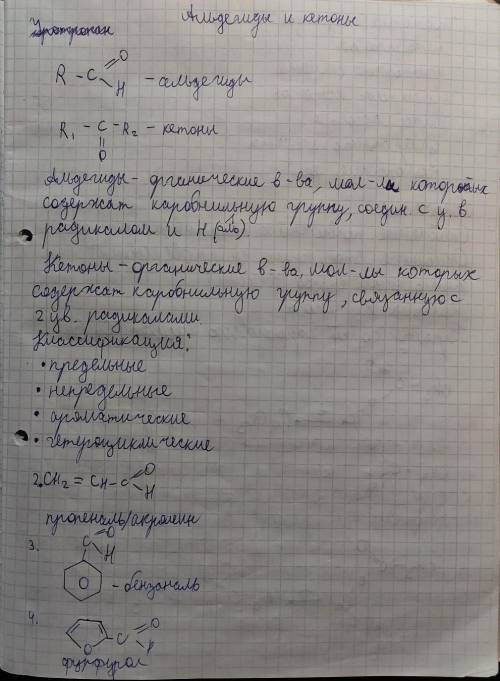 Альдегиды и кетоны
Уротропан
R - C O H - альдегиды
R₁ - C - R₂ - кетоны
O
Альдегиды - органические в-ва, мол-лы которых
содержат каробнильную группу, соедин. с у.в
радикалом и H (ато)
Кетоны - органические в-ва, мол-лы которых
содержат каробнильную группу, связанную с
2 ув. радикалами.
Классификация:
• предельные
• непредельные
• ароматические
• гетероциклические
2. CH₂ = CH - C O H
пропеналь/акролеин
3. C O H
O - бензаналь
4. O C O
фурфурол